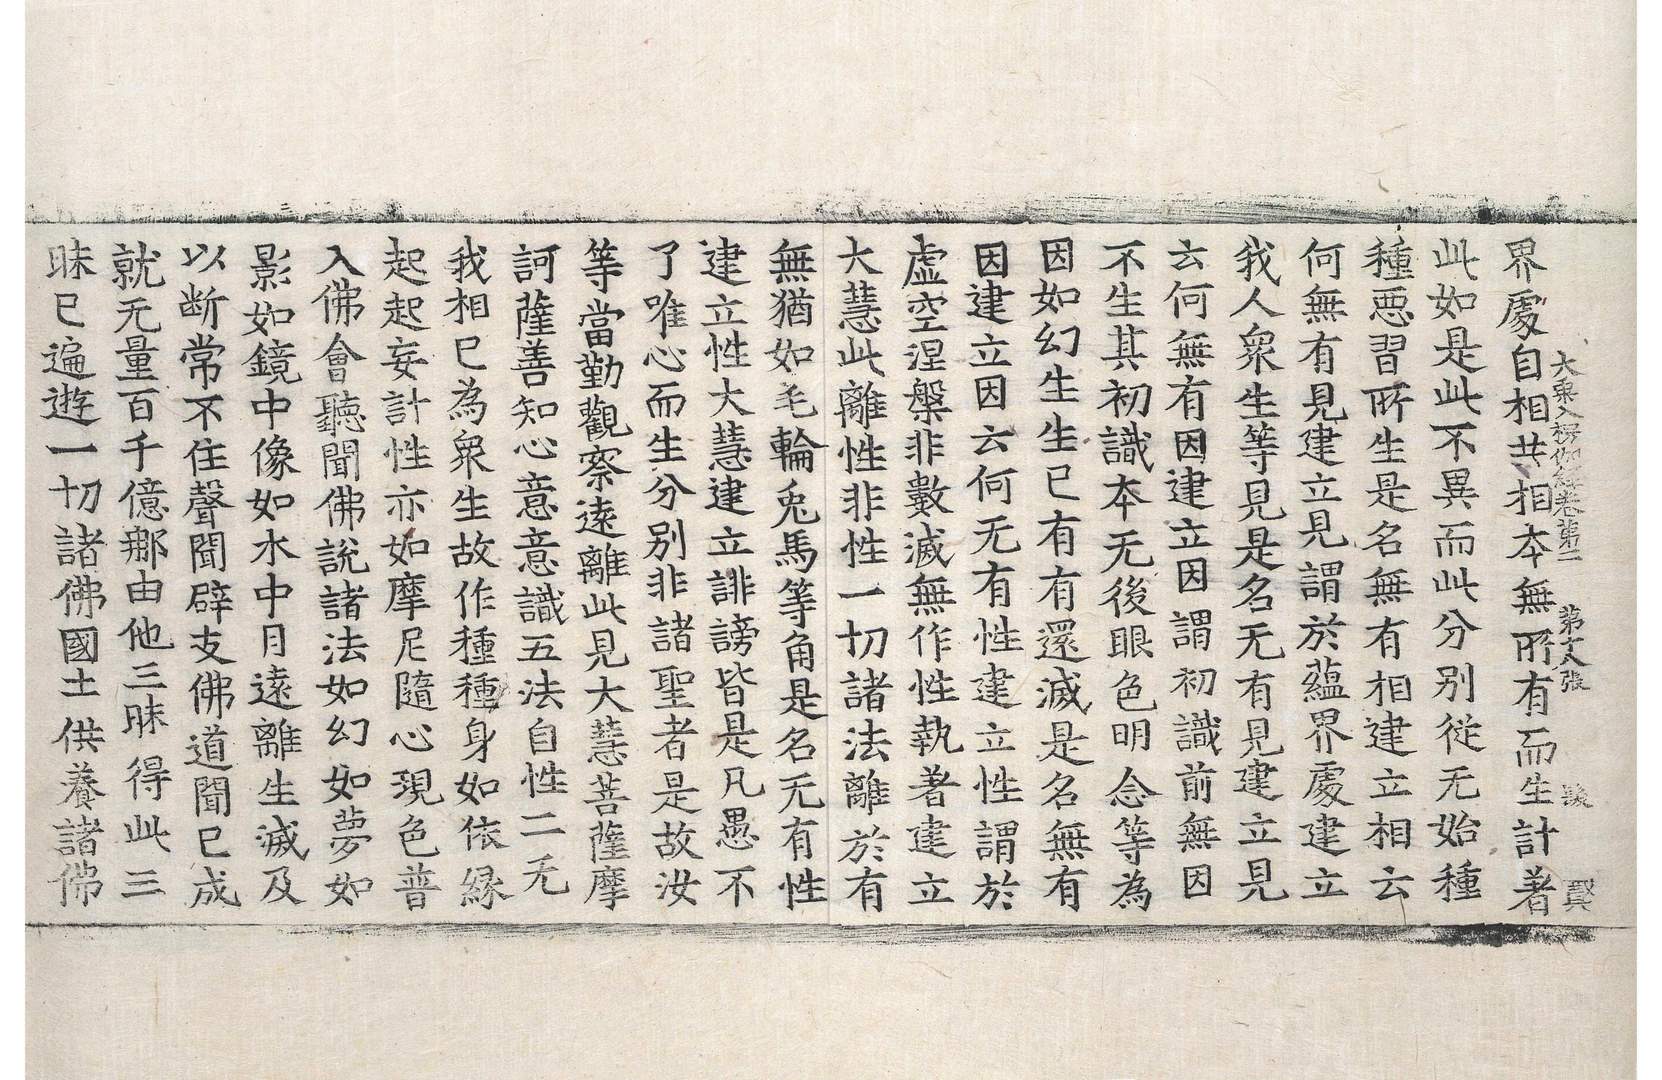 大乘入楞伽經卷第二 第十八張 賢
界處自相共相本無所有而生計著
此如是此不異而此分別從无始種
種惡習所生是名無有相建立相云
何無有見建立見謂於蘊界處建立
我人衆生等見是名无有見建立見
云何無有因建立因謂初識前無因
不生其初識本无後眼色明念等為
因如幻生生已有有還滅是名無有
因建立因云何无有性建立性謂於
虛空涅槃非數滅無作性執著建立
大慧此離性非性一切諸法離於有
無猶如毛輪兎馬等角是名无有性
建立性大慧建立誹謗皆是凡愚不
了唯心而生分別非諸聖者是故汝
等當勤觀察遠離此見大慧菩薩摩
訶薩善知心意意識五法自性二无
我相已為衆生故作種種身如依緣
起起妄計性亦如摩尼隨心現色普
入佛會聽聞佛說諸法如幻如夢如
影如鏡中像如水中月遠離生滅及
以断常不住聲聞辟支佛道聞已成
就无量百千億那由他三昧得此三
昧已遍遊一切諸佛國土供養諸佛